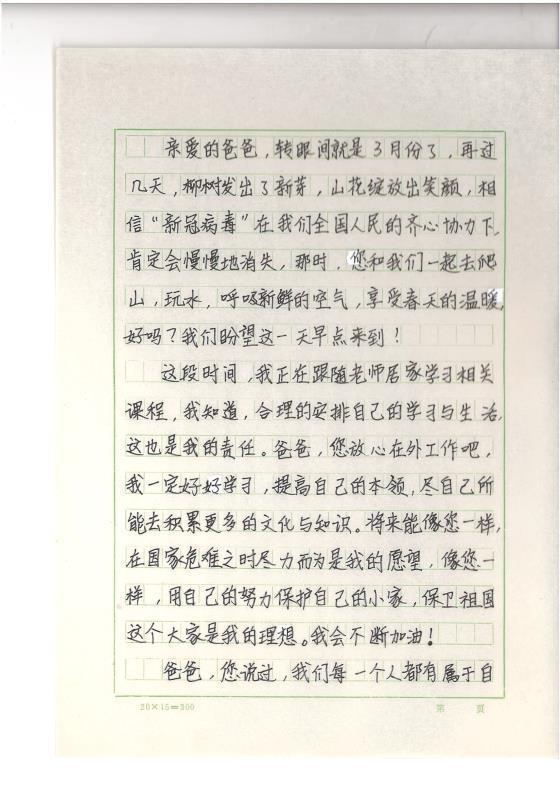 亲爱的爸爸，转眼间就是3月份了，再过
几天，柳树发出了新芽，山花绽放出笑颜，相
信“新冠病毒”在我们全国人民的齐心协力下，
肯定会慢慢地消失，那时，您和我们一起去爬
山，玩水，呼吸新鲜的空气，享受春天的温暖，
好吗？我们盼望这一天早点来到！
这段时间，我正在跟随老师居家学习相关
课程，我知道，合理的安排自己的学习与生活，
这也是我的责任。爸爸，您放心在外工作吧，
我一定好好学习，提高自己的本领，尽自己所
能去积累更多的文化与知识。将来能像您一样，
在国家危难之时尽力而为是我的愿望，像您一
样，用自己的努力保护自己的小家，保卫祖国
这个大家是我的理想。我会不断加油！
爸爸，您说过，我们每一个人都有属于自
20×15=300 第 页